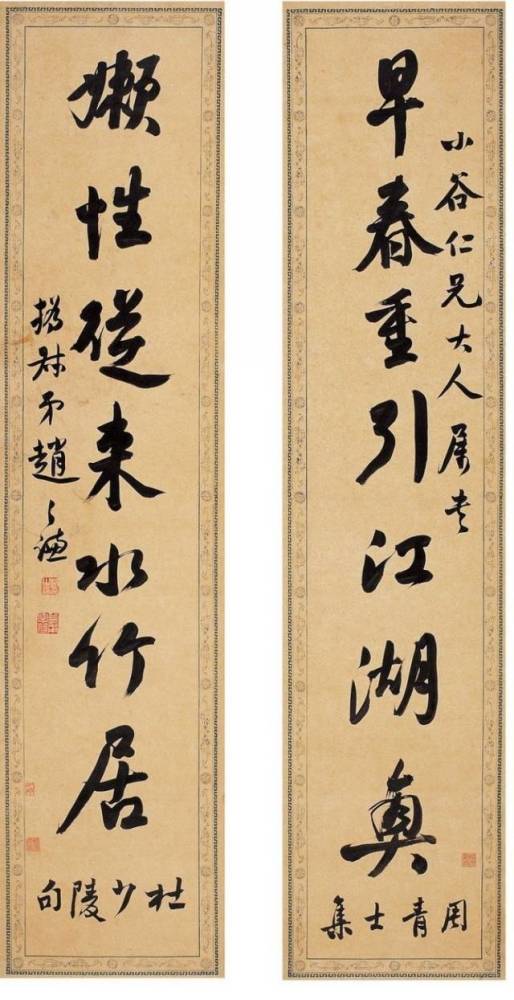 小谷仁兄大人屬書
早春重引江湖興
周青士集
嬾性從来水竹居
杜少陵句
撝叔弟趙之謙